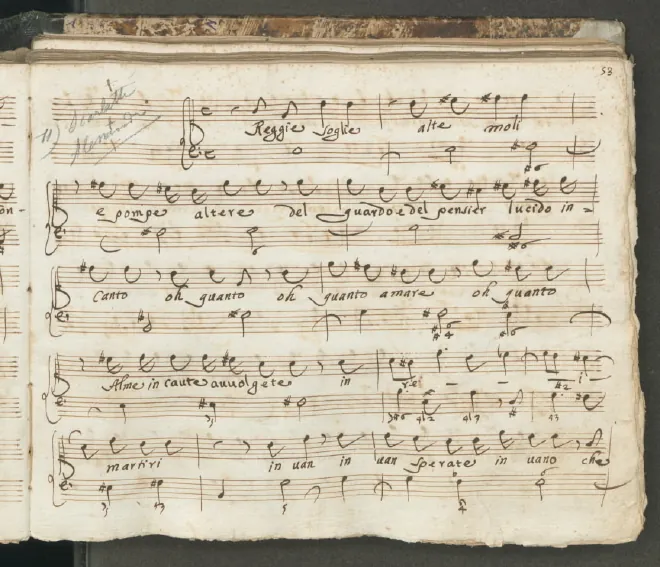 53
11) Scarlatti
Reggie soglie alte moli
e pompe altere del guardo e del pensier lucido in=
canto oh quanto oh quanto amare oh quanto
Alme in caute auuolgete in re - - - i
martiri in uan in uan sperate in uano che